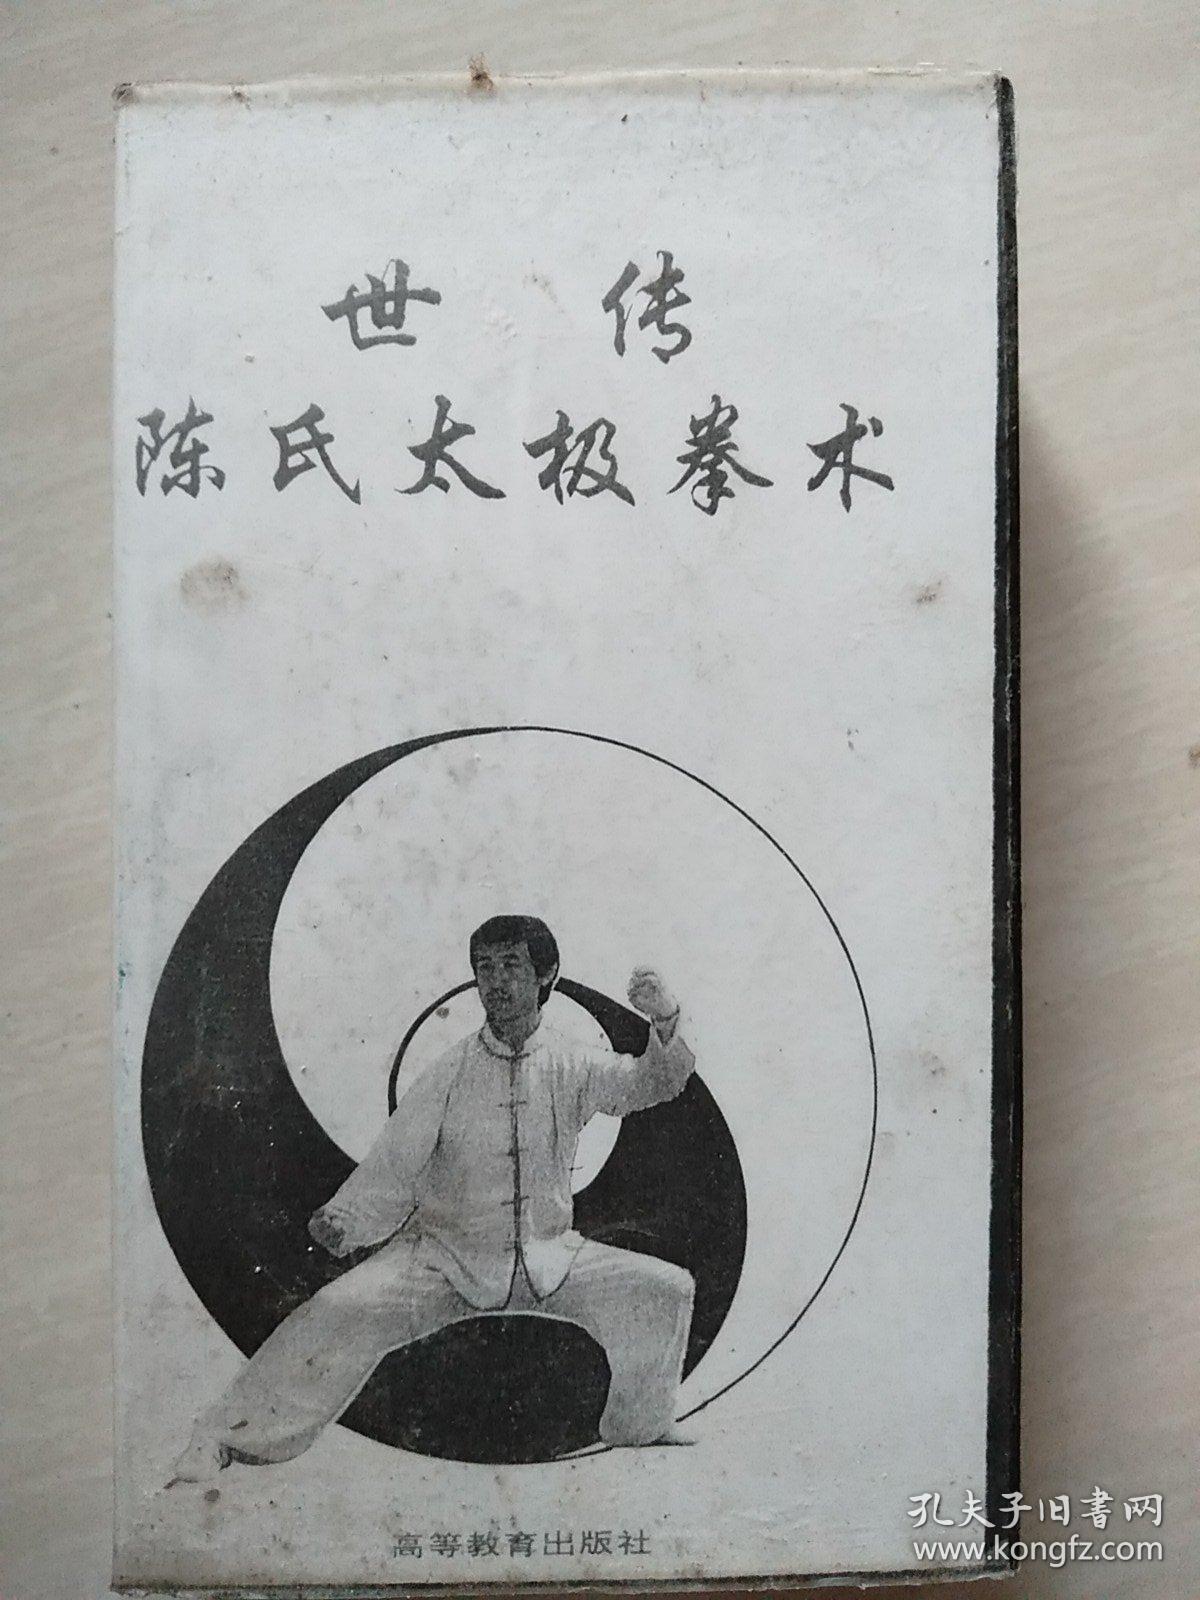 世 传
陈氏太极拳术
高等教育出版社
孔夫子旧書网
www.kongfz.com